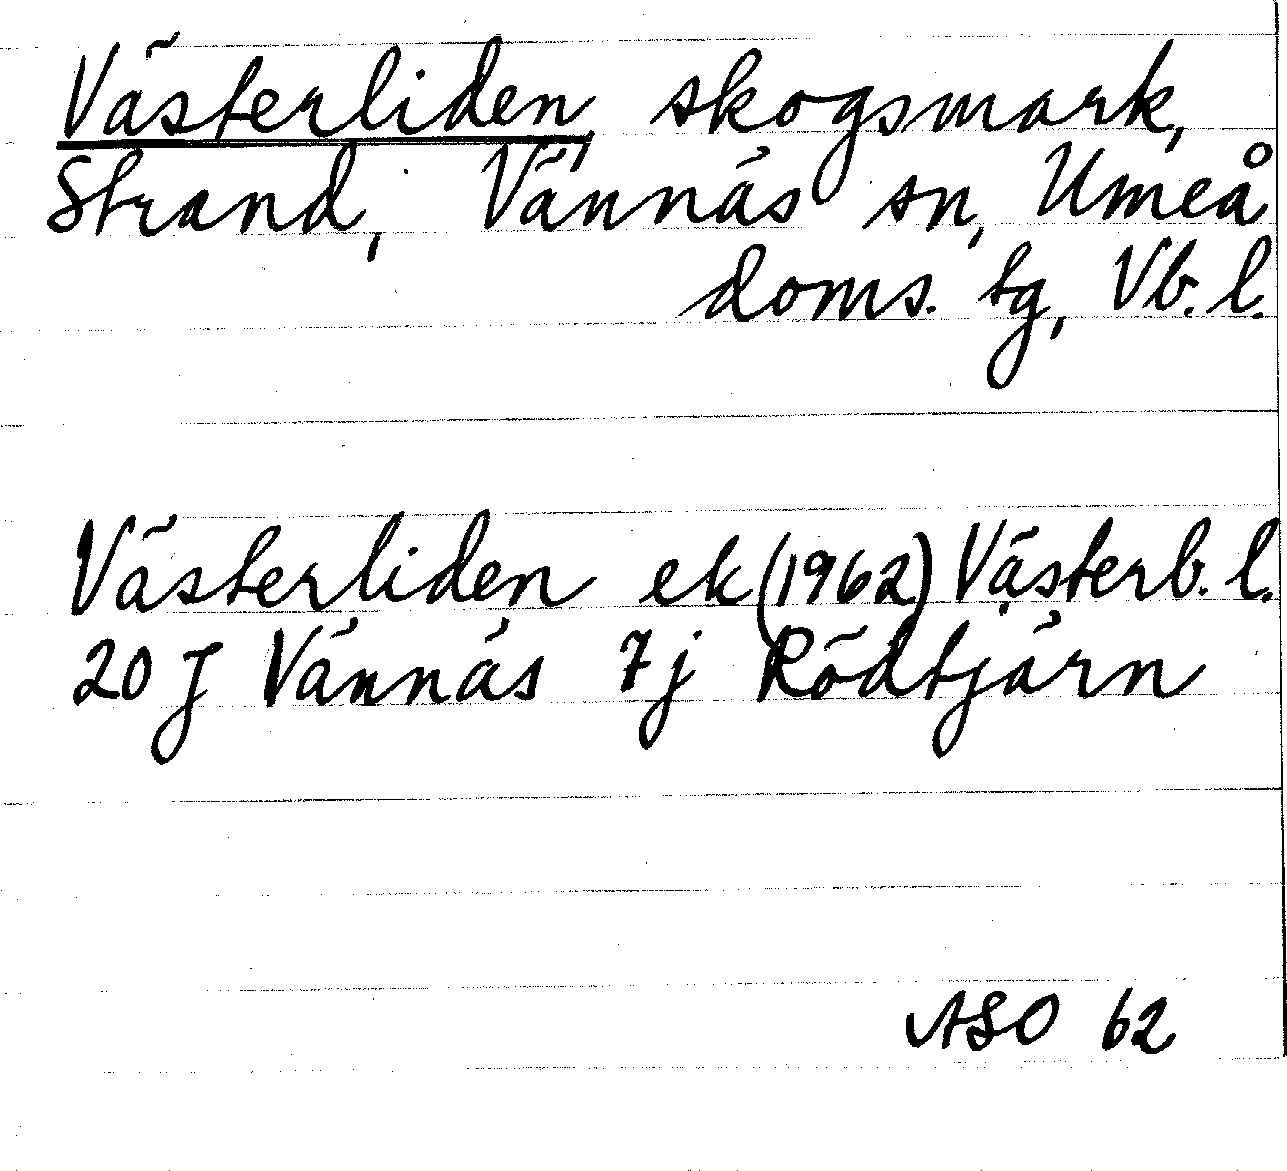 Västerliden, skogsmark,
Strand, Vännäs sn, Umeå
doms. tg, Vb. l.
Västerliden ek (1962) Västerb. l.
20 J Vännäs 7j Rödtjärn
ASO 62